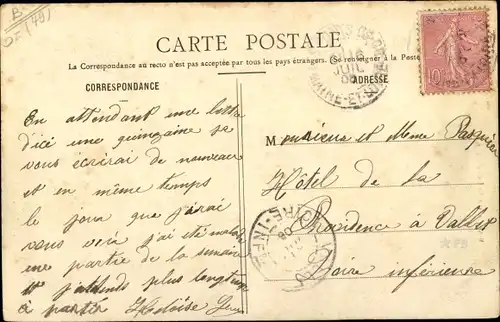 CARTE POSTALE
La Correspondance au recto n'est pas acceptée par tous les pays étrangers. (Se renseigner à la Poste
CORRESPONDANCE
ADRESSE
En attendant une lettre
d'ici une quinzaine je
vous écrirai de nouveau
et en même temps
le jour que j'irai
vous voir j'ai été malade
une partie de la semaine
et j'attends plus longtemps
à partir Héloïse
Monsieur et Mme Pasquier
Hôtel de la
Providence à Vallet
Loire inférieure
10